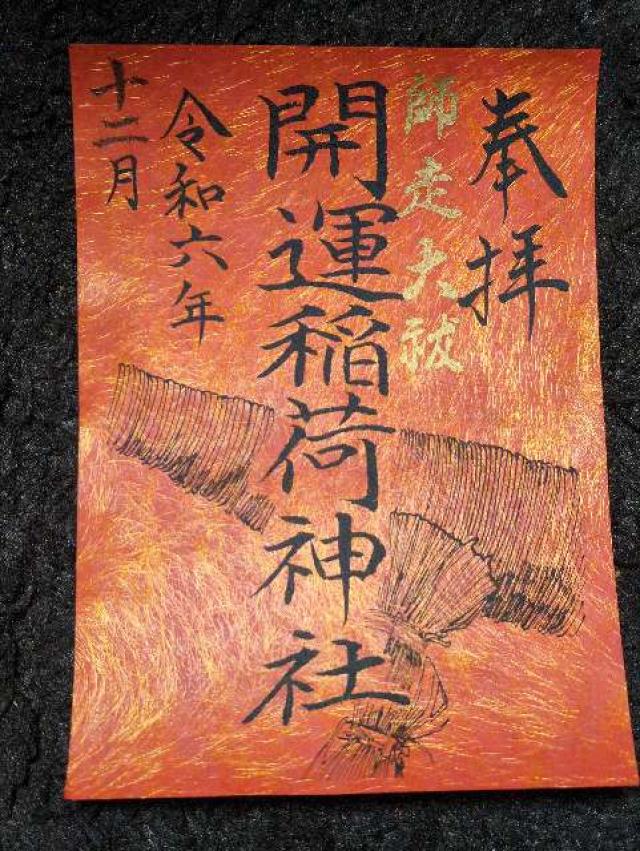 奉拝
師走大祓
開運稲荷神社
令和六年
十二月